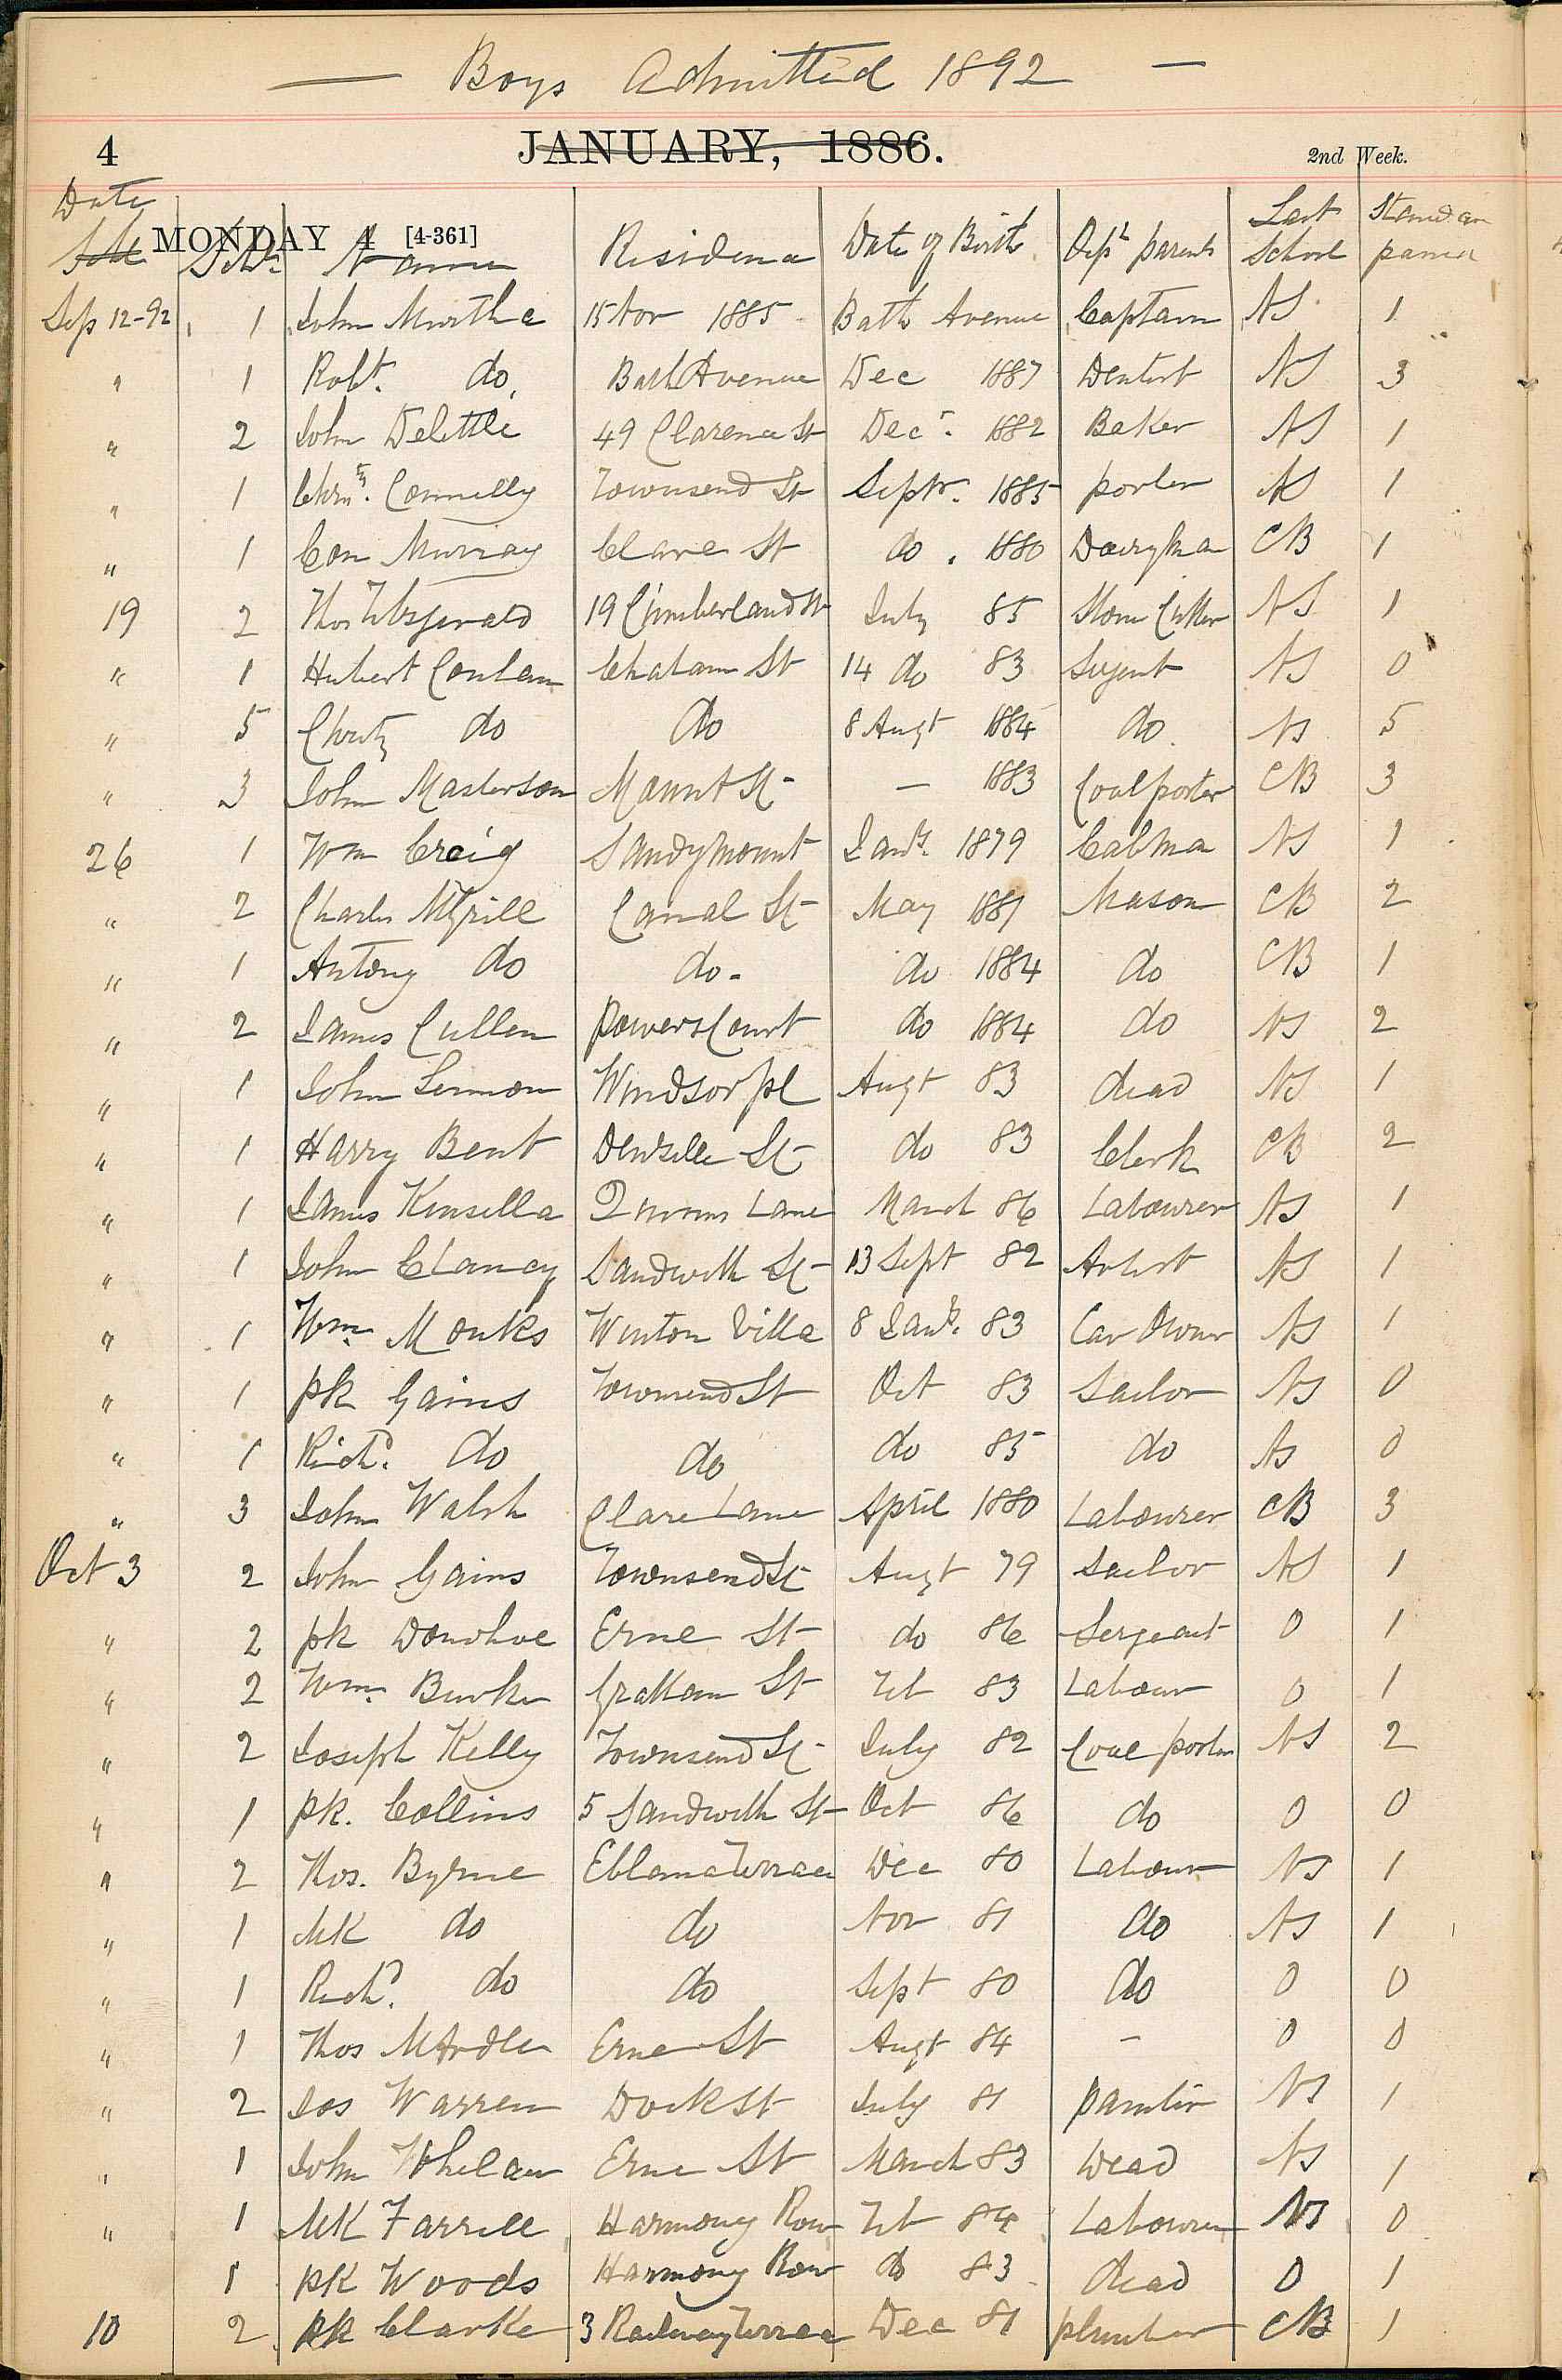 — Boys Admitted 1892 —
4 JANUARY, 1886. 2nd Week.
Date Last Standar
MONDAY 4 [4-361] Residence Date of Birth parents School passed
Sep 12-92 1 John Murtha 15 Nov 1885 Bath Avenue Captain NS 1
" 1 Robt. do. Bath Avenue Dec 1887 Dentist NS 3
" 2 John Delittle 49 Clarence St Decr. 1882 Baker NS 1
" 1 Connelly Townsend St Septr. 1885 porter NS 1
" 1 Con Murray Clare St do. 1880 Dairyman CB 1
19 2 Thos Fitzgerald 19 Cumberland St July 85 Stone Cutter NS 1
" 1 Hubert Conlan Chatam St 14 do 83 NS 0
" 5 do do 8 Augt 1884 do NS 5
" 3 John Masterson Mount St — 1883 Coal porter CB 3
26 1 Wm Craig Sandymount Jany. 1879 Cabman NS 1
" 2 Charles Canal St May 1881 Mason CB 2
" 1 Antony do do. do 1884 do CB 1
" 2 James Cullen Powers Court do 1884 do NS 2
" 1 John Lennon Windsor pl Augt 83 dead NS 1
" 1 Harry Bent Denzille St do 83 Clerk CB 2
" 1 James Kinsella Lane March 86 Labourer NS 1
" 1 John Clancy Sandwith St 13 Sept 82 Artist NS 1
" 1 Wm. Monks Winton Villa 8 Jany. 83 Car Owner NS 1
" 1 Pk Gains Townsend St Oct 83 Sailor NS 0
" 1 Richd. do do do 85 do NS 0
" 3 John Walsh Clare Lane April 1880 Labourer CB 3
Oct 3 2 John Gains Townsend St Augt 79 Sailor NS 1
" 2 pk Donohoe Erne St do 86 Sergeant 0 1
" 2 Wm. Burke Grattan St Feb 83 Labour 0 1
" 2 Joseph Kelly Townsend St July 82 Coal porter NS 2
" 1 pk. Collins 5 Sandwith St Oct 86 do 0 0
" 2 Thos. Byrne Eblana Terrace Dec 80 Labour NS 1
" 1 MK do do Nov 81 do NS 1
" 1 Richd. do do Sept 80 do 0 0
" 1 Thos McArdle Erne St Augt 84 – 0 0
" 2 Jos Warren Dock St July 81 painter NS 1
" 1 John Whelan Erne St March 83 Dead NS 1
" 1 MK Farrell Harmony Row Feb 84 Labourer NS 0
1 PK Woods Harmony Row do 83 dead 0 1
10 2 PK Clarke 3 Railway Terrace Dec 81 plumber CB 1